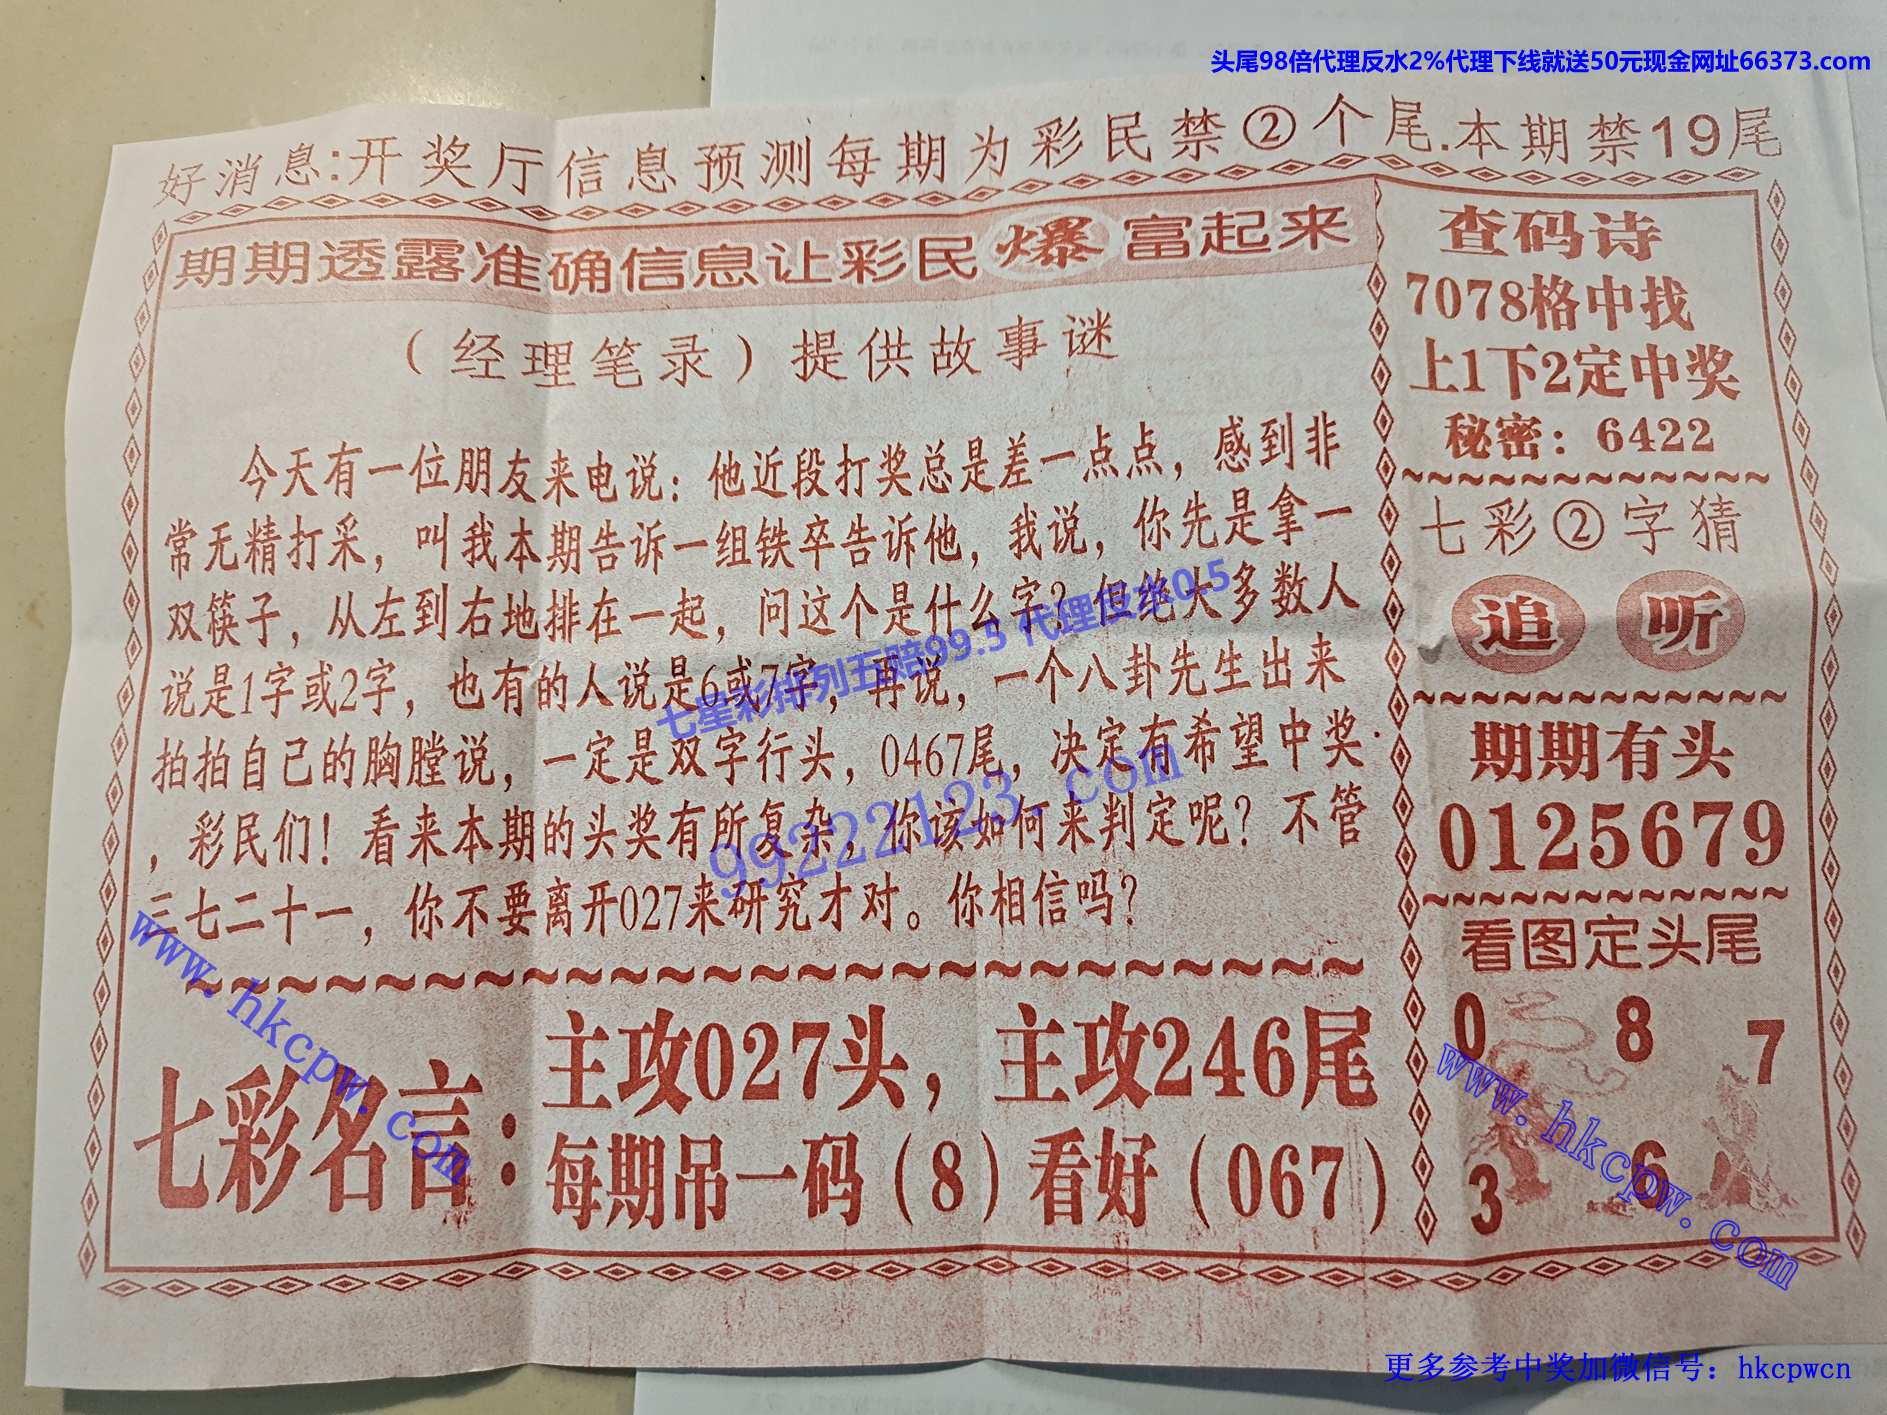 头尾98倍代理反水2%代理下线就送50元现金网址66373.com
好消息:开奖厅信息预测每期为彩民禁②个尾.本期禁19尾
期期透露准确信息让彩民爆富起来
（经理笔录）提供故事谜
今天有一位朋友来电说：他近段打奖总是差一点点，感到非
常无精打采，叫我本期告诉一组铁卒告诉他，我说，你先是拿一
双筷子，从左到右地排在一起，问这个是什么字？但绝大多数人
说是1字或2字，也有的人说是6或7字，再说，一个八卦先生出来
拍拍自己的胸膛说，一定是双字行头，0467尾，决定有希望中奖
，彩民们！看来本期的头奖有所复杂，你该如何来判定呢？不管
三七二十一，你不要离开027来研究才对。你相信吗？
七彩名言：
主攻027头，主攻246尾
每期吊一码（8）看好（067）
查码诗
7078格中找
上1下2定中奖
秘密：6422
七彩②字猜
追 听
期期有头
0125679
看图定头尾
0 8 7
3 6
七星彩排列五赔99.5 代理但水0.5
99222123.com
www.hkcpw.com
www.hkcpw.com
更多参考中奖加微信号：hkcpwcn